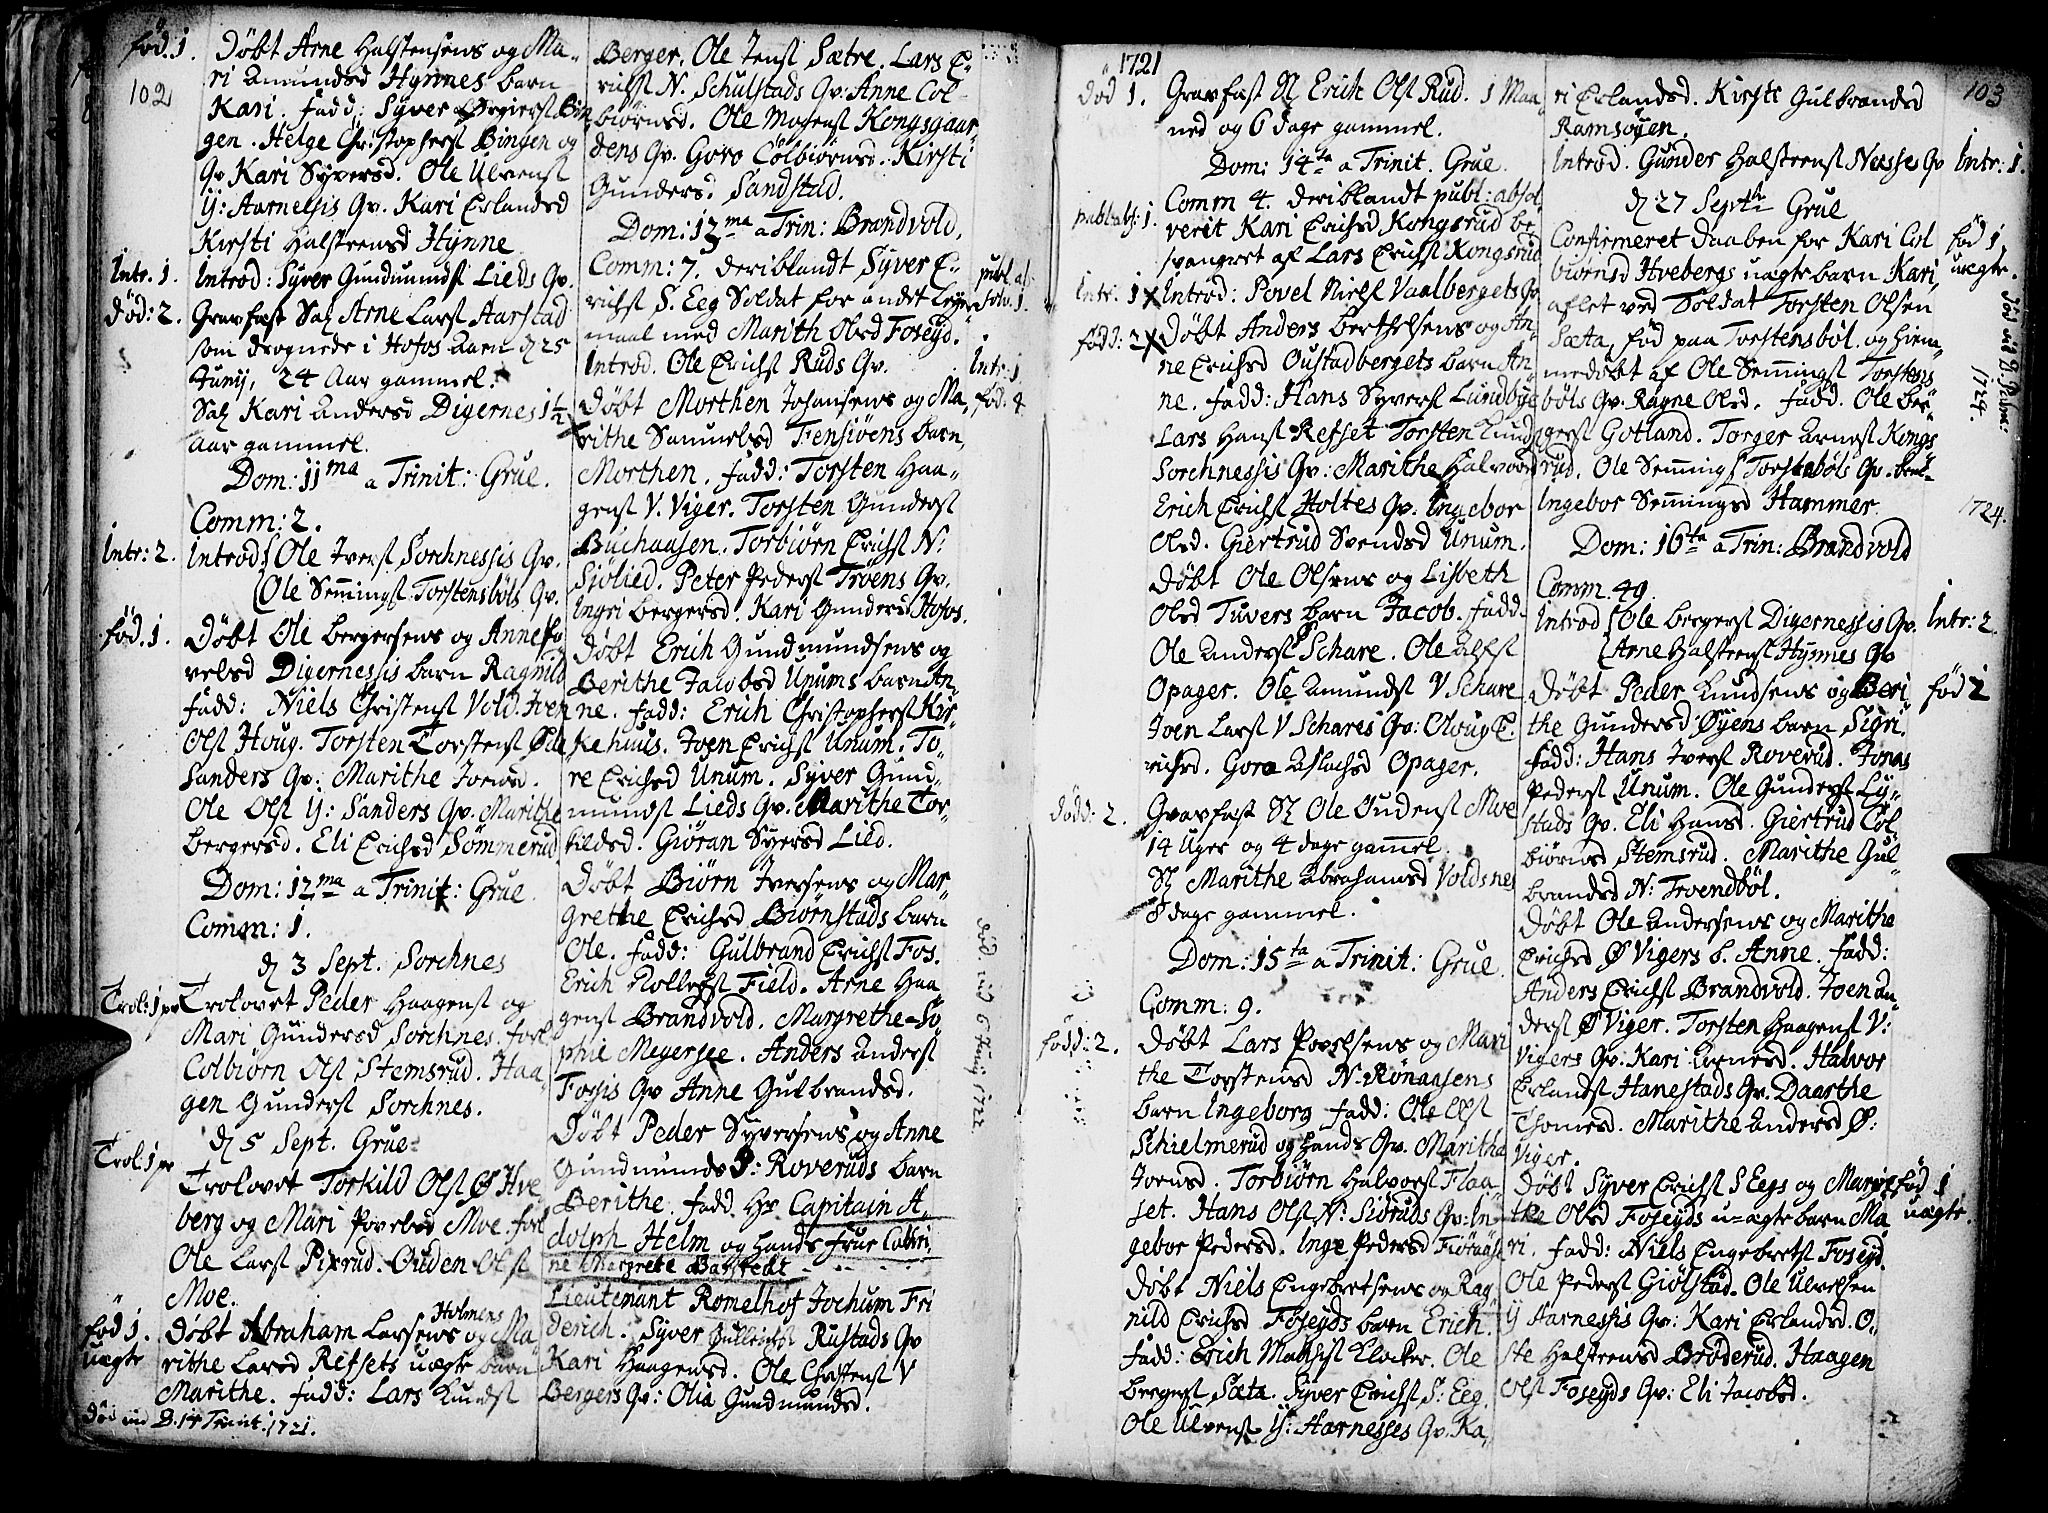 102
fød. 1.
Døbt Arne Halstensens og Ma-
ri Amundsd Hynnes barn
Kari. fadd: Syver Bin
gen. Helge Christophers Bingen og
Qv Kari Syversd. Ole Ulvens
Y: Aarnessis Qv. Kari Erlandsd
Kirsti Halstensd Hynne
Intr. 1.
Introd: Syver Gundmunds Lieds Qv.
død: 2.
Gravfæst Sal Arne Lars Aarstad
som drognede i Hofos Aaen d 25
Junij, 24 Aar gammel.
Sal Kari Andersd Digernes 1½
Aar gammel.
Dom: 11ma a Trinit: Grue.
Comm: 2.
Intr: 2.
Introd Ole Ivers Sorchnessis Qv.
Ole Semings Torstensbøls Qv.
fød. 1.
Døbt Ole Bergersens og Anne Po
velsd Digernessis barn Ragnild
fadd: Niels Christens Vold. Iven
Ols Houg. Torsten Torstens Øde
Sanders Qv: Marithe Joensd.
Ole Ols Y: Sanders Qv. Marithe
Bergersd. Eli Erichsd Sømmerud
Dom: 12ma a Trinit: Grue.
Comm: 1.
d 3 Sept. Sorchnes
Trol: 1 pr
Trolovet Peder Haagens og
Mari Gundersd Sorchnes. forl
Colbiørn Ols Stemsrud. Haa
gen Gunders Sorchnes.
d 5 Sept. Grue
Trol: 1 pr
Trolovet Torkild Ols Ø Hve
berg og Mari Povelsd Moe. forl
Ole Lars Pixrud. Ouden Ols
Moe.
fød 1.
uægte
Holmens
Døbt Abraham Larsens og Ma
rithe Larsd Refsets uægte barn
Marithe. fadd: Lars Knuds
død vid D. 14 Trinit. 1721.
Berger. Ole Jens Sætre. Lars E-
richs N. Schulstads Qv: Anne Col-
biørnsd. Ole Mogens Kongsgaar
dens Qv. Goro Colbiørnsd. Kirsti
Gundersd Sandstad.
Dom: 13ma a Trin: Brandvold.
Comm: 7. deriblandt Syver E-
publ. ab-
solv. 1.
richs S. Eeg Soldat for andet Leyer
maal med Marith Olsd Foseyd.
Introd. Ole Erichs Ruds Qv.
Intr: 1
Døbt Morthen Johansens og Ma,
fød. 4
rithe Samuelsd Fensiøens barn,
Morthen. fadd: Torsten Haa-
gens V. Viger. Torsten Gunders
Buchaasen. Torbiørn Erichs N:
Siølied. Peter Peders Trøens Qv.
Ingri Bergersd. Kari Gundersd Hofos.
Døbt Erich Gundmundsens og
Berithe Jacobsd Unums barn An-
ne. fadd: Erich Christophers Kir-
kehuus. Joen Erichs Unum. To-
re Erichsd Unum. Syver Gund-
munds Lieds Qv. Marithe Tor-
kildsd. Giøran Syversd Lied.
Døbt Biørn Iversens og Mar-
grethe Erichsd Biørnstads barn
Ole. fadd: Gulbrand Erichs Fos.
Erich Rollefs Field. Arne Haa
gens Brandvold. Margrethe So
phie Megersee. Anders Anders
Fossis Qv Anne Gulbrandsd.
død. vid 6 Junij 1722.
Døbt Peder Syversens og Anne
Gundmunds S: Roveruds barn
Berithe. fadd. Hr Capitain A.
dolph Helm og hands frue Cathri-
ne Margrete Barstedt
Lieutenant Romelhof Jochum Fri
derich. Syver Rustads Qv
Kari Haagensd. Ole Christens V
Bergers Qv: Olia Gundmundsd.
1721
død 1.
Gravfæst Sl Erich Ols Rud. 1 Maa
ned og 6 dage gammel.
Dom: 14ta a Trinit. Grue.
publ abs: 1.
Comm 4. deriblandt publ: absol
verit Kari Erichsd Kongsrud be
svangret af Lars Erichs Kongsrud
Intr. 1
Introd: Povel Niels Vaalbergets Qv
fødd: 2
Døbt Anders Berthelsens og An-
ne Erichsd Oustadbergets barn An
ne. fadd: Hans Syvers Lundbye
Lars Hans Refset Torsten Knuds
Sorchnessis Qv: Marithe Halvorsd
Erich Erichs Holtes Qv: Ingebor
Olsd. Giertrud Svendsd Unum.
Døbt Ole Olsens og Lisbeth
Olsd Tuvers barn Jacob. fadd.
Ole Anders Schare. Ole Alfs
Opager. Ole Amunds V Schare
Joen Lars V Schares Qv: Oloug E.
richsd. Gora Aslachsd Opager.
dødd: 2.
Gravfæst Sl Ole Oudens Moe
14 Uger og 4 dage gamel.
Sl Marithe Abrahamsd Voldsnes
8 dage gammel.
Dom: 15ta a Trinit: Grue.
Comm: 9.
fødd: 2.
Døbt Lars Povelsens og Mari
the Torstensd N. Rønaasens
barn Ingeborg fadd: Ole Ols
Schielmerud og hands Qv. Maritha
Joensd. Torbiørn Halvors Flaa-
set. Hans Ols N: Sidruds Qv: In
gebor Pedersd. Inge Pedersd
Døbt Niels Engebretsens og Rag
nild Erichsd Foseyds barn Erich.
fadd: Erich Klocker. Ole
Bergers Sæta. Syver Erichs S: Eeg.
Ole Ulvens Y: Aarnesses Qv. Ka,
103
ri Erlandsd. Kirsti Gulbrandsd
Ramsøyen.
Introd. Gunder Halstens Næsse Qv
Intr: 1.
d 27 Septbr Grue
Confirmeret daaben for Kari Col
fød 1.
uægte.
biørnsd Hvebergs uægte barn Kari,
aflet ved Soldat Torsten Olsen
Sæta, fød paa Torstensbøl. og hiem-
medøbt af Ole Semings Torstens
bøls Qv. Ragne Olsd. fadd. Ole Ber-
gers Gotland. Torger Arnes Kongs
rud. Ole Semings Torstebøls Qv.
Ingebor Semingsd Hammer.
1724.
1724.
Dom: 16ta a Trin: Brandvold
Comm. 49.
Introd Ole Bergers Digernessis Qv.
Intr: 2.
Arne Halstens Hynnes Qv
Døbt Peder Knudsens og Beri
fød 2
the Gundersd Øyens barn Sigri.
fadd: Hans Ivers Roverud. Jonas
Peders Unum. Ole Gunders Ly-
stads Qv. Eli Hansd. Giertrud Col-
biørnsd Stemsrud. Marithe Gul-
brandsd N: Troendbøl.
Døbt Ole Andersens og Marithe
Erichsd Ø Vigers b. Anne. fadd:
Anders Erichs Brandvold. Joen An-
ders Ø Viger. Torsten Haagens V:
Vigers Qv: Kari Arnesd. Halvor
Erlands Hanestads Qv. Daarthe
Thomesd. Marithe Andersd Ø:
Viger.
Døbt Syver Erichs S Eegs og Mari
fød 1
uægte.
the Olsd Foseyds u-ægte barn Ma
ri. fadd: Niels Engebrets Foseyd.
Ole Peders Giølstad. Ole Ulvelsen
Y Aarnessis Qv: Kari Erlandsd. O.
ste Halstensd Brøderud. Haagen
Ols Foseyds Qv: Eli Jacobsd.